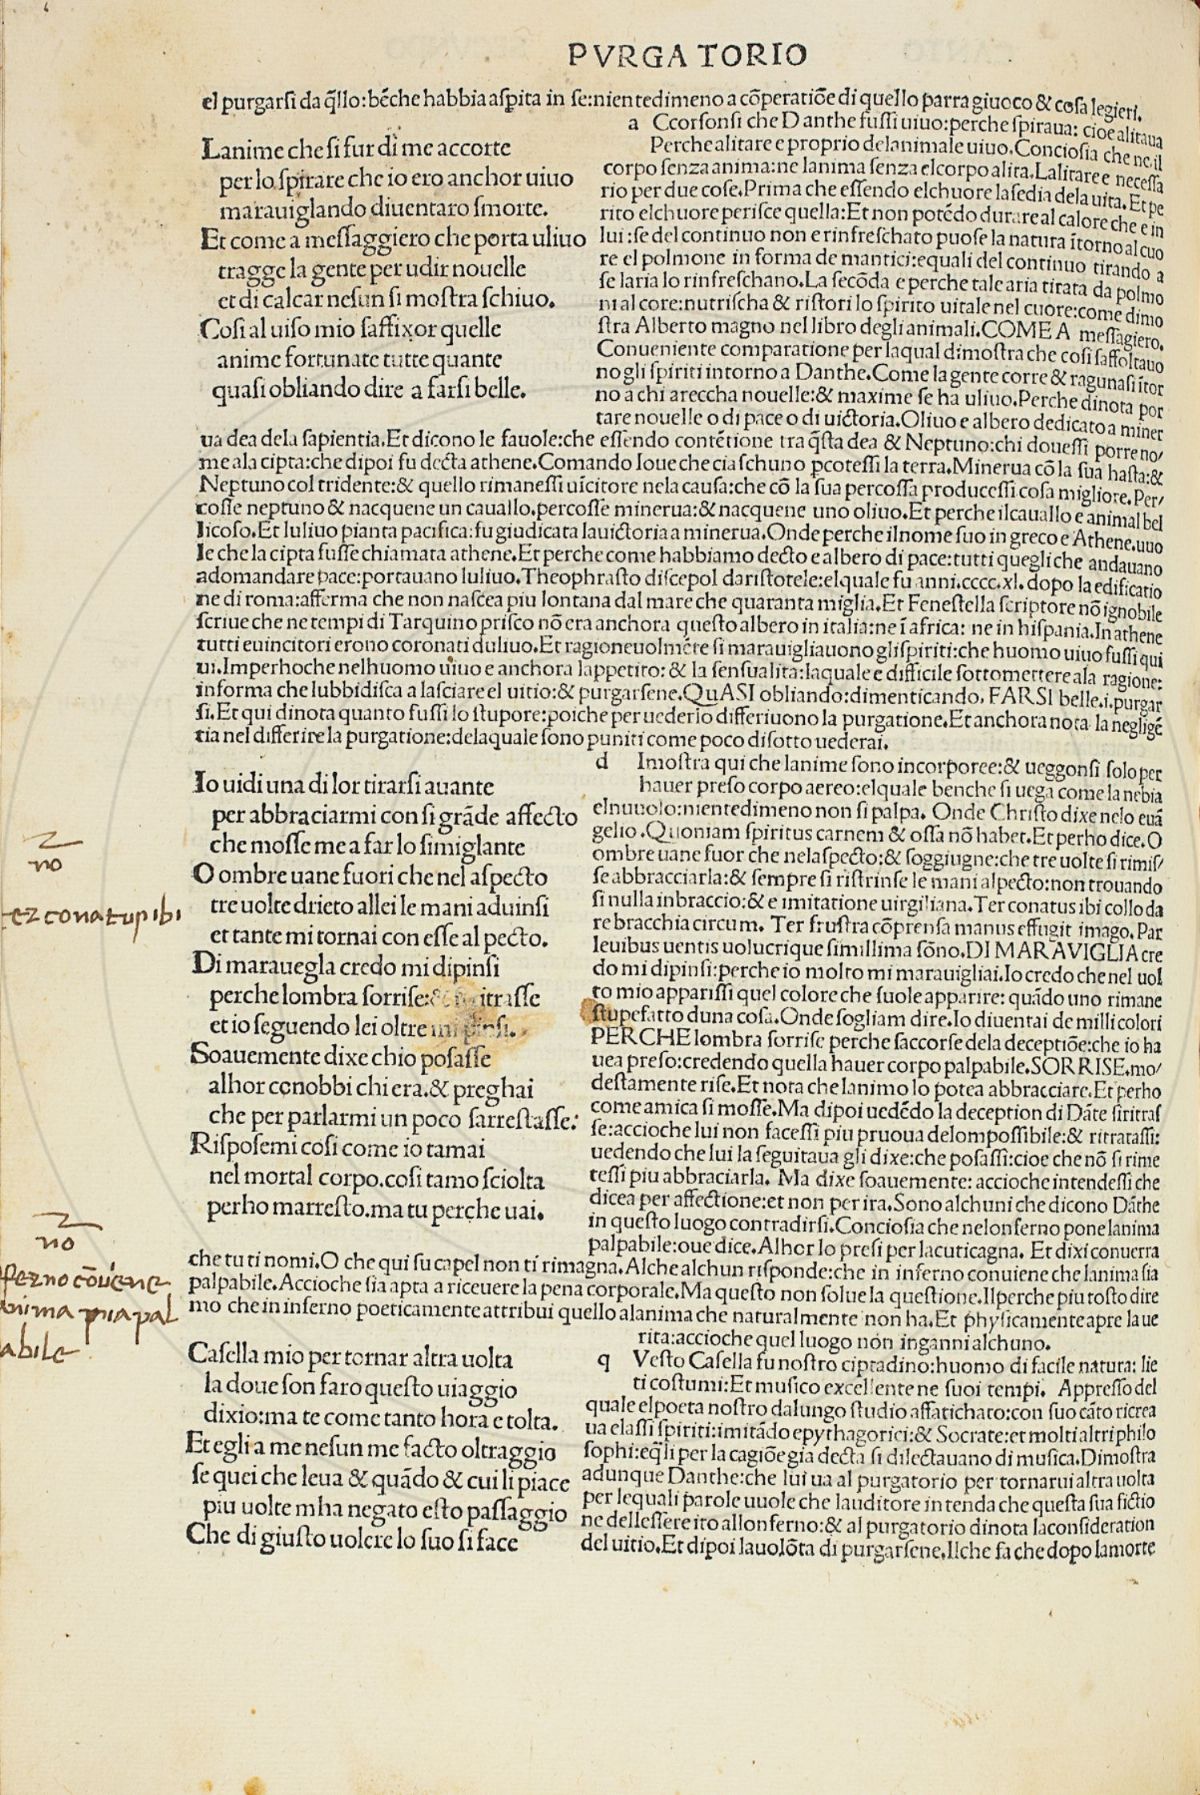 PVRGATORIO
el purgarsi da q̃llo: bẽche habbia aspita in se: nientedimeno a cõperatiõe di quello parra giuoco & cosa legieri.
Lanime che si fur di me accorte
per lo spirare che io ero anchor uiuo
marauiglando diuentaro smorte.
Et come a messaggiero che porta uliuo
tragge la gente per udir nouelle
et di calcar nesun si mostra schiuo.
Cosi al uiso mio saffixor quelle
anime fortunate tutte quante
quasi obliando dire a farsi belle.
a Ccorsonsi che Danthe fussi uiuo: perche spiraua: cioe alitaua
Perche alitare e proprio delanimale uiuo. Conciosia che ne, il
corpo senza anima: ne lanima senza el corpo alita. Lalitare e necessa
rio per due cose. Prima che essendo elchuore la sedia dela uita. Et pe
rito elchuore perisce quella: Et non potẽdo durare al calore che e in
lui: se del continuo non e rinfreschato puose la natura ĩtorno al cuo
re el polmone in forma de mantici: equali del continuo tirando a
se laria lo rinfreschano. La secõda e perche tale aria tirata da polmo
ni al core: nutrischa & ristori lo spirito uitale nel cuore: come dimo
stra Alberto magno nel libro degli animali. COME A messagiero.
Conueniente comparatione per laqual dimostra che cosi saffoltauo
no gli spiriti intorno a Danthe. Come la gente corre & ragunasi ĩtor
no a chi areccha nouelle: & maxime se ha uliuo. Perche dinota por
tare nouelle o di pace o di uictoria. Oliuo e albero dedicato a miner
ua dea dela sapientia. Et dicono le fauole: che essendo contẽtione tra q̃sta dea & Neptuno: chi douessi porre no/
me ala cipta: che dipoi fu decta athene. Comando Ioue che ciaschuno pcotessi la terra. Minerua cõ la sua hasta: &
Neptuno col tridente: & quello rimanessi uĩcitore nela causa: che cõ la sua percossa producessi cosa migliore. Per/
cosse neptuno & nacquene un cauallo. percosse minerua: & nacquene uno oliuo. Et perche il cauallo e animal bel
licoso. Et luliuo pianta pacifica: fu giudicata lauictoria a minerua. Onde perche il nome suo in greco e Athene. uuo
le che la cipta fusse chiamata athene. Et perche come habbiamo decto e albero di pace: tutti quegli che andauano
adomandare pace: portauano luliuo. Theophrasto discepol daristotele: elquale fu anni. cccc. xl. dopo la edificatio
ne di roma: afferma che non nascea piu lontana dal mare che quaranta miglia. Et Fenestella scriptore nõ ignobile
scriue che ne tempi di Tarquino prisco nõ era anchora questo albero in italia: ne ĩ africa: ne in hispania. In athene
tutti euincitori erono coronati duliuo. Et ragioneuolmẽte si marauigliauono gli spiriti: che huomo uiuo fussi qui
ui. Imperhoche nelhuomo uiuo e anchora lappetito: & la sensualita: laquale e difficile sottomettere ala ragione:
in forma che lubbidisca a lasciare el uitio: & purgarsene. QuASI obliando: dimenticando. FARSI belle. i. purgar
si. Et qui dinota quanto fussi lo stupore: poiche per uederlo differiuono la purgatione. Et anchora nota la neglige͂
tia nel differire la purgatione: delaquale sono puniti come poco disotto uederai.
Io uidi una di lor tirarsi auante
per abbraciarmi con si grãde affecto
che mosse me a far lo simiglante
O ombre uane fuori che nel aspecto
tre uolte drieto allei le mani aduinsi
et tante mi tornai con esse al pecto.
Di marauegla credo mi dipinsi
perche lombra sorrise: & si ritrasse
et io seguendo lei oltre mi pinsi.
Soauemente dixe chio posasse
alhor conobbi chi era. & preghai
che per parlarmi un poco sarrestasse:
Risposemi cosi come io tamai
nel mortal corpo. cosi tamo sciolta
perho marresto. ma tu perche uai.
d Imostra qui che lanime sono incorporee: & ueggonsi solo per
hauer preso corpo aereo: elquale benche si uega come la nebia
el nuuolo: nientedimeno non si palpa. Onde Christo dixe nelo euã
gelio. Quoniam spiritus carnem & ossa nõ habet. Et perho dice. O
ombre uane fuor che nelaspecto: & soggiugne: che tre uolte si rimis/
se abbracciarla: & sempre si ristrinse le mani al pecto: non trouando
si nulla in braccio: & e imitatione uirgiliana. Ter conatus ibi collo da
re bracchia circum. Ter frustra cõprensa manus effugit imago. Par
leuibus uentis uolucrique simillima sõno. DI MARAVIGLIA cre
do mi dipinsi: perche io molto mi marauigliai. Io credo che nel uol
to mio apparissi quel colore che suole apparire: quãdo uno rimane
stupefatto duna cosa. Onde sogliam dire. Io diuentai de milli colori
PERCHE lombra sorrise perche saccorse dela deceptiõe: che io ha
uea preso: credendo quella hauer corpo palpabile. SORRISE. mo/
destamente rise. Et nota che lanimo lo potea abbracciare. Et perho
come amica si mosse. Ma dipoi uedẽdo la deception di Dãte si ritras
se: accioche lui non facessi piu pruoua delompossibile: & ritratassi:
uedendo che lui la seguitaua gli dixe: che posassi: cioe che nõ si rime
tessi piu abbraciarla. Ma dixe soauemente: accioche intendessi che
dicea per affectione: et non per ira. Sono alchuni che dicono Dãthe
in questo luogo contradirsi. Conciosia che nelonferno pone lanima
palpabile: oue dice. Alhor lo presi per la cuticagna. Et dixi conuerra
che tu ti nomi. O che qui su capel non ti rimagna. Alche alchun risponde: che in inferno conuiene che lanima sia
palpabile. Accioche sia apta a riceuere la pena corporale. Ma questo non solue la questione. Ilperche piu tosto dire
mo che in inferno poeticamente attribui quello alanima che naturalmente non ha. Et physicamente apre la ue
rita: accioche quel luogo non inganni alchuno.
Casella mio per tornar altra uolta
la doue son faro questo uiaggio
dixio: ma te come tanto hora e tolta.
Et egli a me nesun me facto oltraggio
se quei che leua & quãdo & cui li piace
piu uolte mha negato esto passaggio
Che di giusto uolere lo suo si face
q Vesto Casella fu nostro ciptadino: huomo di facile natura: lie
ti costumi: Et musico excellente ne suoi tempi. Appresso del
quale el poeta nostro dalungo studio affatichato: con suo cãto ricrea
ua elassi spiriti: imitãdo epythagorici: & Socrate: et molti altri philo
sophi: eq̃li per la cagiõe gia decta si dilectauano di musica. Dimostra
adunque Danthe: che lui ua al purgatorio per tornarui altra uolta
per lequali parole uuole che lauditore intenda che questa sua fictio
ne dellessere ito allonferno: & al purgatorio dinota laconsideration
del uitio. Et dipoi lauolõta di purgarsene. Ilche fa che dopo la morte
no
ter conatus ibi
no
ĩferno cõuiene
anima sia pal
abile